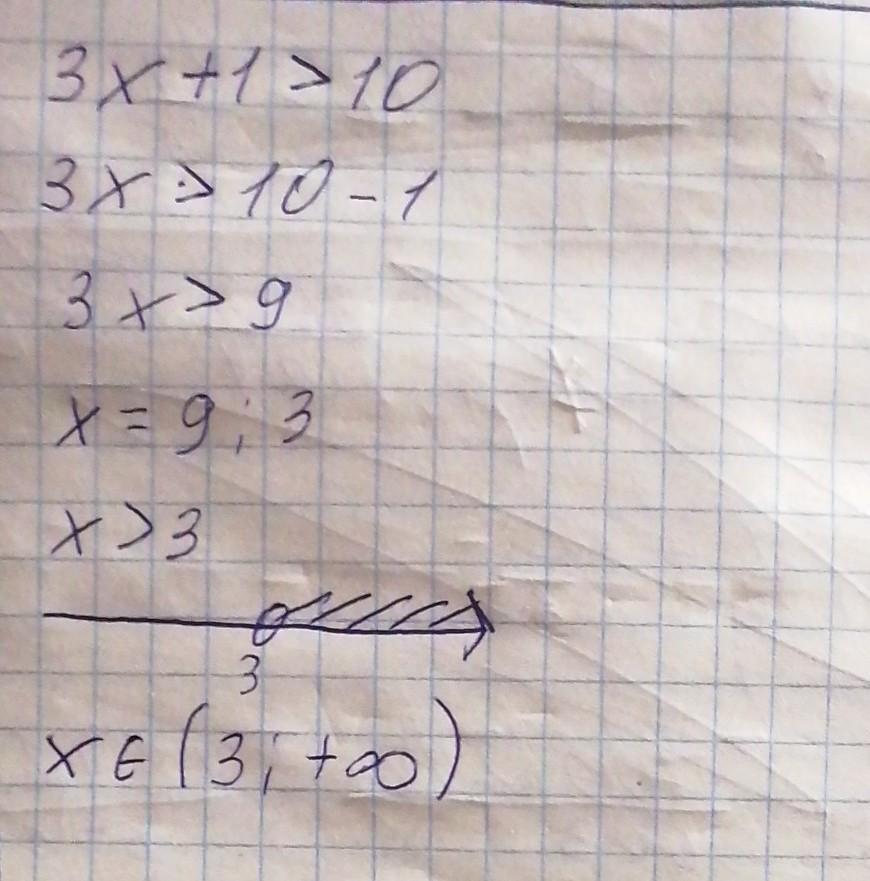 3x+1>10
3x>10-1
3x>9
x=9;3
x>3
3
x∈(3;+∞)